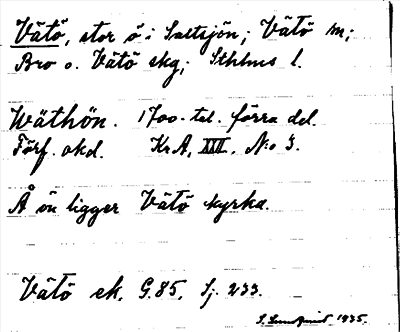 Vätö, stor ö i Saltsjön; Vätö sn;
Bro o. Vätö skg; Sthlms l.
Wäthön. 1700-tal. förra del.
Förf. okd. KrA, XXII. N:o 3.
Å ön ligger Vätö kyrka.
Vätö ek. G.85. Sj. 233.
S. Lundqvist 1935.